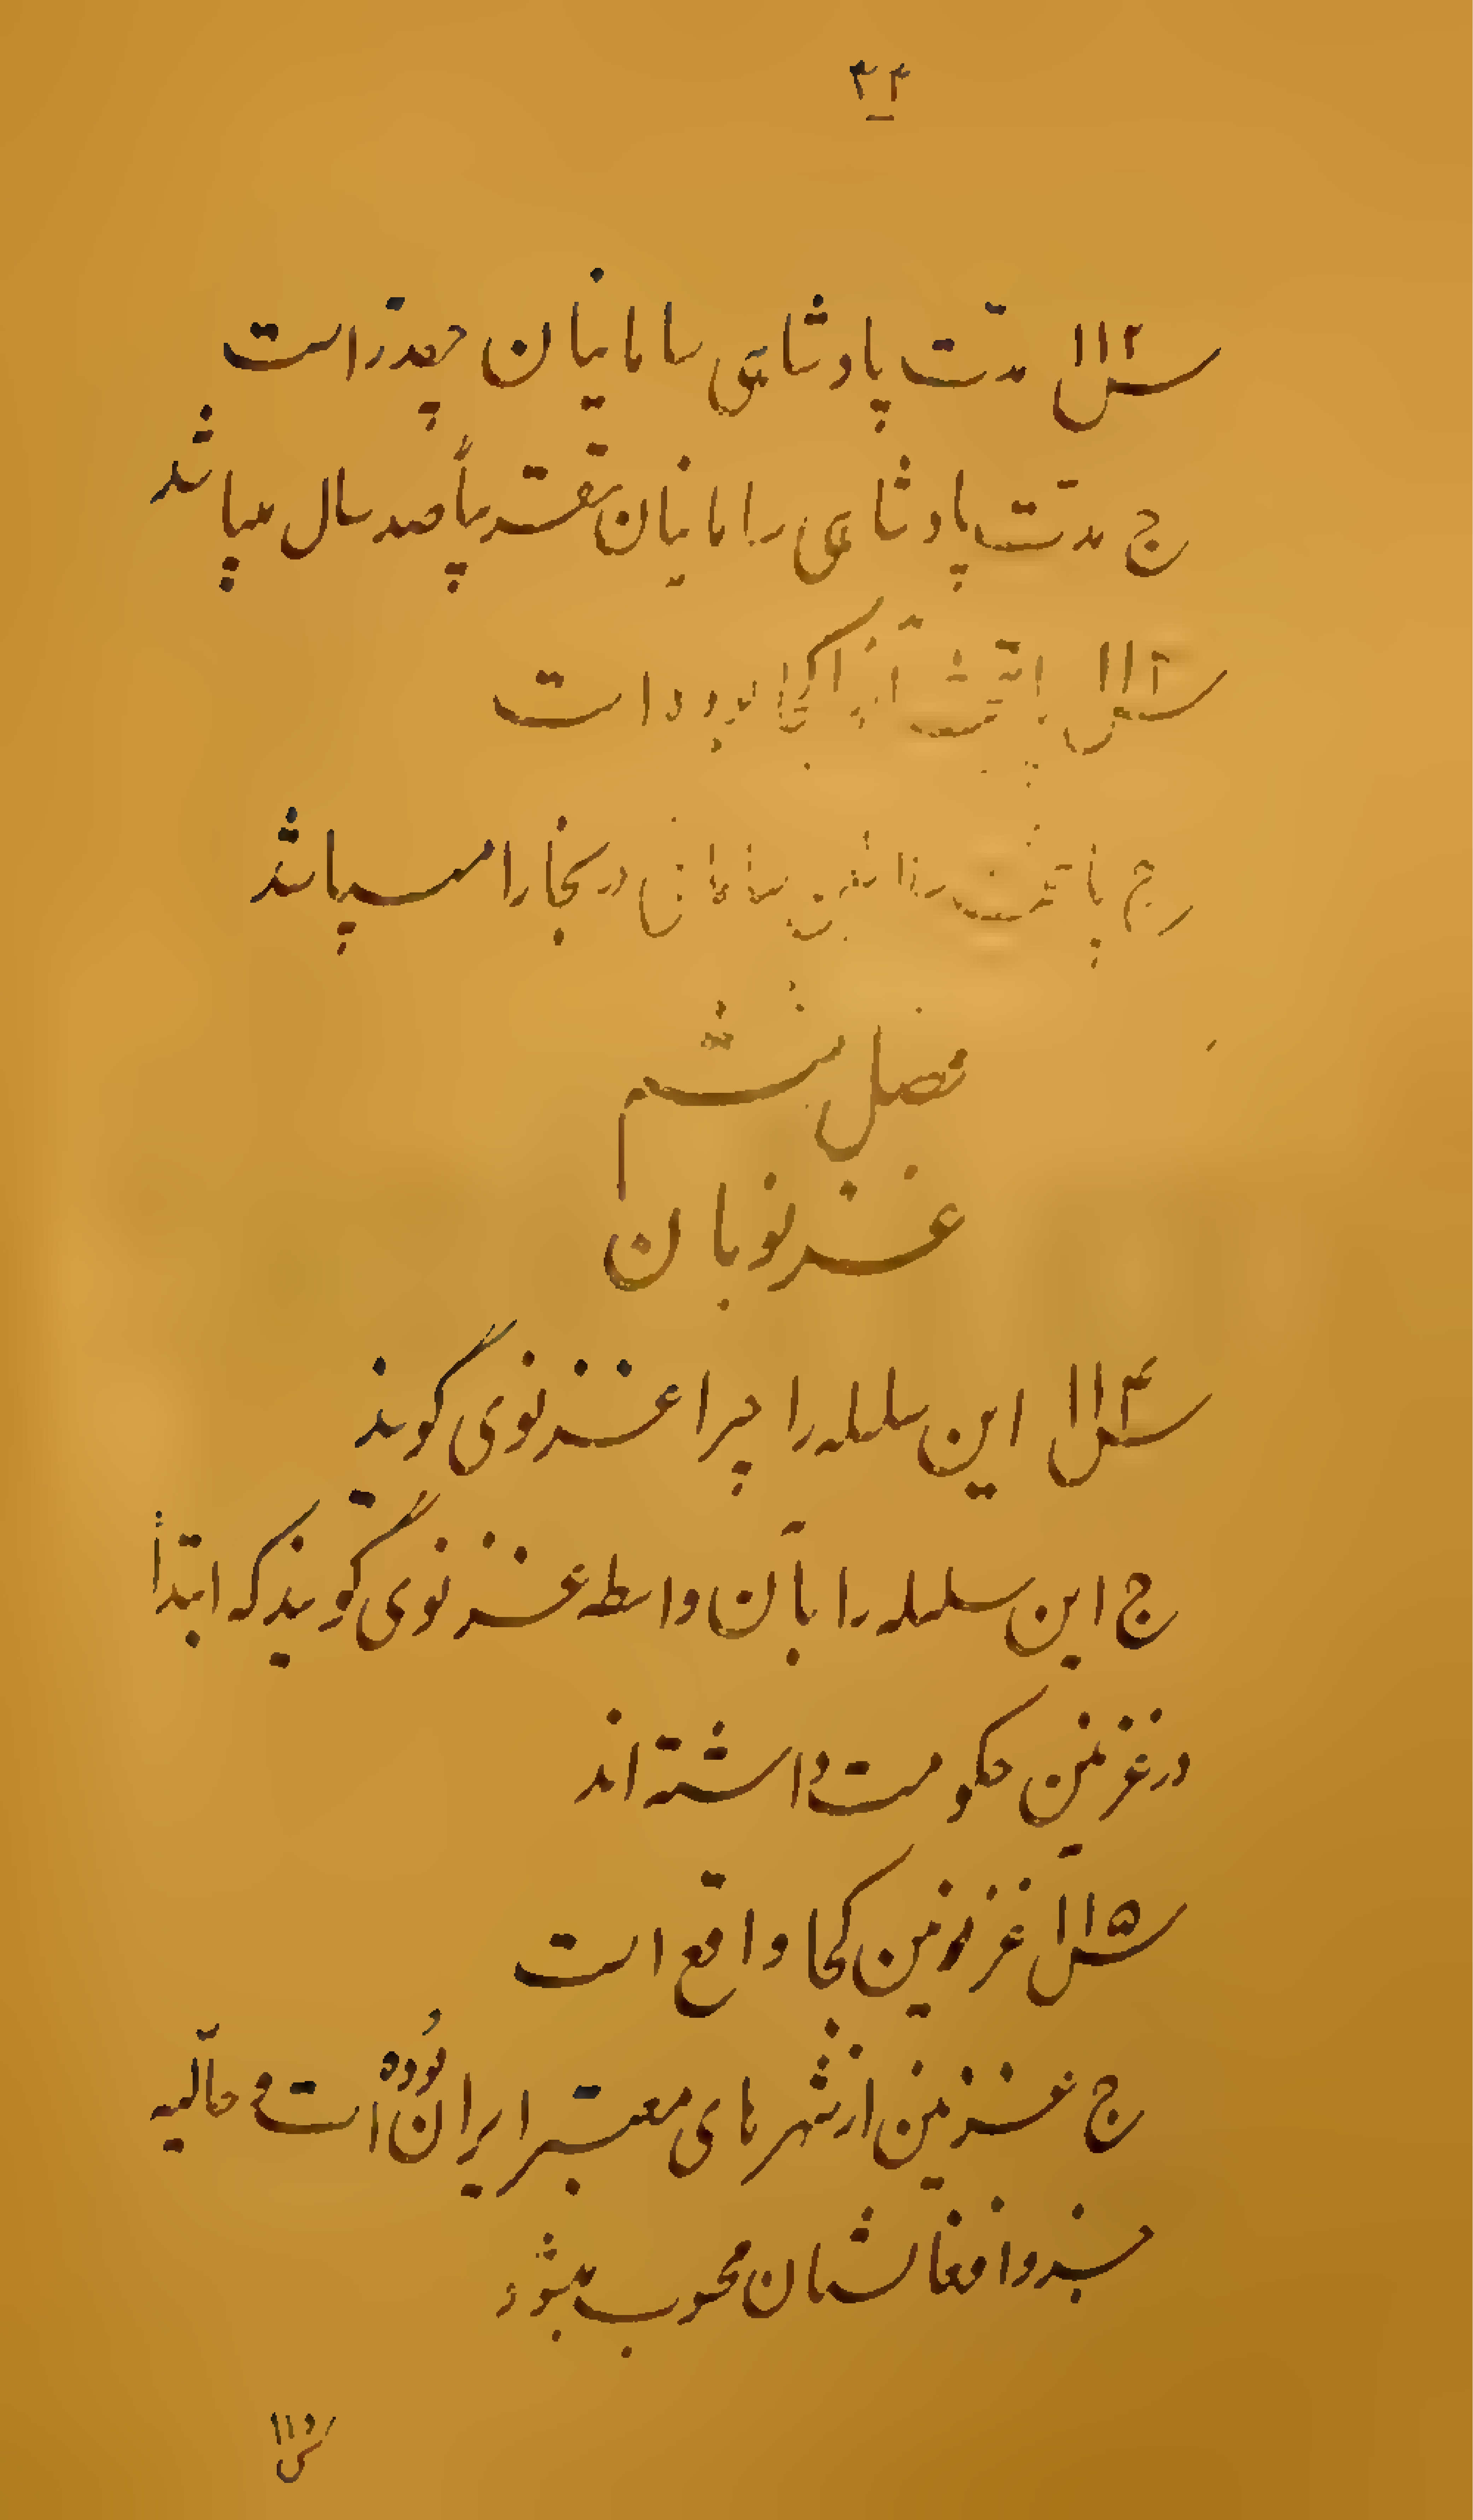 ۳۴
س ۱۱۲ مدّت پادشاهی سامانیان چقدر است
ج مدّت پادشاهی سامانیان تقریباً صد سال میباشد
س ۱۱۳ پایتخت از کجا بوده است
ج پایتخت سامانیان در بخارا میباشد
فصل ششم
غزنویان
س ۱۱۴ این سلسله را چرا غزنوی گویند
ج این سلسله را بآن واسطه غزنوی گویند که ابتدأ
در غزنین حکومت داشته اند
س ۱۱۵ غزنین کجا واقع است
ج غزنین از شهرهای معتبر ایران بوده است و حالّیه
جزو افغانستان محسوب میشود